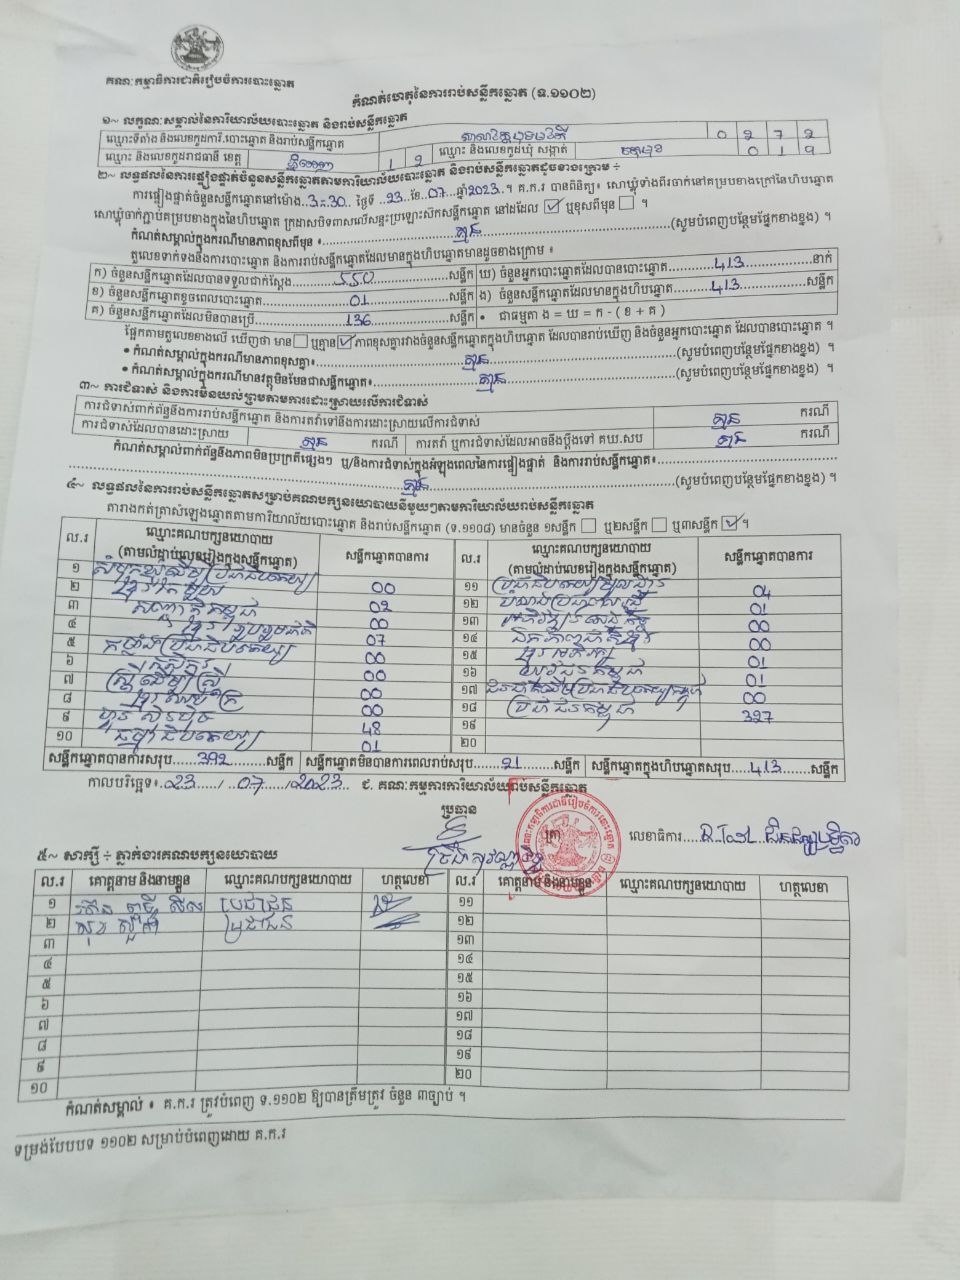 គណៈកម្មាធិការជាតិរៀបចំការបោះឆ្នោត
កំណត់ហេតុនៃការរាប់សន្លឹកឆ្នោត (ទ.១១០២)
១~ លក្ខណៈសម្គាល់នៃការិយាល័យបោះឆ្នោត និងរាប់សន្លឹកឆ្នោត
ឈ្មោះទីតាំង និងលេខកូដការិ.បោះឆ្នោត និងរាប់សន្លឹកឆ្នោត 0 2 7 2
ឈ្មោះ និងលេខកូដរាជធានី ខេត្ត ភ្នំពេញ 1 2 ឈ្មោះ និងលេខកូដឃុំ សង្កាត់ 0 1 9
២~ លទ្ធផលនៃការផ្ទៀងផ្ទាត់ចំនួនសន្លឹកឆ្នោតតាមការិយាល័យបោះឆ្នោត និងរាប់សន្លឹកឆ្នោតដូចខាងក្រោម ÷
ការផ្ទៀងផ្ទាត់ចំនួនសន្លឹកឆ្នោតនៅម៉ោង 3:30 ថ្ងៃទី 23 ខែ 07 ឆ្នាំ 2023 ។ គ.ក.រ បានពិនិត្យ៖ សោឃ្លុំទាំងពីរចាក់នៅគម្របខាងក្រៅនៃហិបឆ្នោត
សោឃ្លុំចាក់ភ្ជាប់គម្របខាងក្នុងនៃហិបឆ្នោត ក្រដាសបិទពាសលើសន្ទះប្រឡោះសិកសន្លឹកឆ្នោត នៅដដែល ☑ ឬខុសពីមុន ☐ ។
កំណត់សម្គាល់ក្នុងករណីមានភាពខុសពីមុន ៖ គ្មាន (សូមបំពេញបន្ថែមផ្នែកខាងខ្នង) ។
តួលេខទាក់ទងនឹងការបោះឆ្នោត និងការរាប់សន្លឹកឆ្នោតដែលមានក្នុងហិបឆ្នោតមានដូចខាងក្រោម ៖
ក) ចំនួនសន្លឹកឆ្នោតដែលបានទទួលជាក់ស្តែង 550 សន្លឹក ឃ) ចំនួនអ្នកបោះឆ្នោតដែលបានបោះឆ្នោត 413 នាក់
ខ) ចំនួនសន្លឹកឆ្នោតខូចពេលបោះឆ្នោត 01 សន្លឹក ង) ចំនួនសន្លឹកឆ្នោតដែលមានក្នុងហិបឆ្នោត 413 សន្លឹក
គ) ចំនួនសន្លឹកឆ្នោតដែលមិនបានប្រើ 136 សន្លឹក • ជាធម្មតា ង = ឃ = ក - ( ខ + គ )
ផ្អែកតាមតួលេខខាងលើ ឃើញថា មាន ☐ ឬគ្មាន ☑ ភាពខុសគ្នារវាងចំនួនសន្លឹកឆ្នោតក្នុងហិបឆ្នោត ដែលបានរាប់ឃើញ និងចំនួនអ្នកបោះឆ្នោត ដែលបានបោះឆ្នោត ។
• កំណត់សម្គាល់ក្នុងករណីមានភាពខុសគ្នា៖ គ្មាន (សូមបំពេញបន្ថែមផ្នែកខាងខ្នង) ។
• កំណត់សម្គាល់ក្នុងករណីមានវត្ថុមិនមែនជាសន្លឹកឆ្នោត៖ គ្មាន (សូមបំពេញបន្ថែមផ្នែកខាងខ្នង) ។
៣~ ការជំទាស់ និងការមិនយល់ព្រមតាមការដោះស្រាយលើការជំទាស់
ការជំទាស់ពាក់ព័ន្ធនឹងការរាប់សន្លឹកឆ្នោត និងការតវ៉ាទៅនឹងការដោះស្រាយលើការជំទាស់ គ្មាន ករណី
ការជំទាស់ដែលបានដោះស្រាយ គ្មាន ករណី ការតវ៉ា ឬការជំទាស់ដែលអាចនឹងប្តឹងទៅ គឃ.សប គ្មាន ករណី
កំណត់សម្គាល់ពាក់ព័ន្ធនឹងភាពមិនប្រក្រតីផ្សេងៗ ឬ/និងការជំទាស់ក្នុងអំឡុងពេលនៃការផ្ទៀងផ្ទាត់ និងការរាប់សន្លឹកឆ្នោត៖
គ្មាន (សូមបំពេញបន្ថែមផ្នែកខាងខ្នង) ។
៤~ លទ្ធផលនៃការរាប់សន្លឹកឆ្នោតសម្រាប់គណបក្សនយោបាយនីមួយៗតាមការិយាល័យរាប់សន្លឹកឆ្នោត
តារាងកត់ត្រាសំឡេងឆ្នោតតាមការិយាល័យបោះឆ្នោត និងរាប់សន្លឹកឆ្នោត (ទ.១១០៨) មានចំនួន ១សន្លឹក ☐ ឬ២សន្លឹក ☐ ឬ៣សន្លឹក ☑ ។
ល.រ ឈ្មោះគណបក្សនយោបាយ (តាមលំដាប់លេខរៀងក្នុងសន្លឹកឆ្នោត) សន្លឹកឆ្នោតបានការ ល.រ ឈ្មោះគណបក្សនយោបាយ (តាមលំដាប់លេខរៀងក្នុងសន្លឹកឆ្នោត) សន្លឹកឆ្នោតបានការ
១ សំបុកឃ្មុំដើម្បីប្រជាធិបតេយ្យ 00 ១១ 04
២ 02 ១២ 01
៣ 00 ១៣ 00
៤ 07 ១៤ 00
៥ កម្លាំងប្រជាធិបតេយ្យ 00 ១៥ 01
៦ 00 ១៦ យុវជនកម្ពុជា 01
៧ ស្ត្រីដើម្បីស្ត្រី 00 ១៧ 00
៨ 00 ១៨ ប្រជាជនកម្ពុជា 327
៩ ហ្វ៊ុនស៊ិនប៉ិច 48 ១៩
១០ ធម្មាធិបតេយ្យ 01 ២០
សន្លឹកឆ្នោតបានការសរុប 392 សន្លឹក សន្លឹកឆ្នោតមិនបានការពេលរាប់សរុប 21 សន្លឹក សន្លឹកឆ្នោតក្នុងហិបឆ្នោតសរុប 413 សន្លឹក
កាលបរិច្ឆេទ៖ 23 / 07 / 2023 ជ. គណៈកម្មការការិយាល័យរាប់សន្លឹកឆ្នោត
ប្រធាន ត្រា លេខាធិការ
៥~ សាក្សី ÷ ភ្នាក់ងារគណបក្សនយោបាយ
ល.រ គោត្តនាម និងនាមខ្លួន ឈ្មោះគណបក្សនយោបាយ ហត្ថលេខា ល.រ គោត្តនាម និងនាមខ្លួន ឈ្មោះគណបក្សនយោបាយ ហត្ថលេខា
១ ប្រជាជន ១១
២ ប្រជាជន ១២
៣ ១៣
៤ ១៤
៥ ១៥
៦ ១៦
៧ ១៧
៨ ១៨
៩ ១៩
១០ ២០
កំណត់សម្គាល់ ៖ គ.ក.រ ត្រូវបំពេញ ទ.១១០២ ឱ្យបានត្រឹមត្រូវ ចំនួន ៣ច្បាប់ ។
ទម្រង់បែបបទ ១១០២ សម្រាប់បំពេញដោយ គ.ក.រ